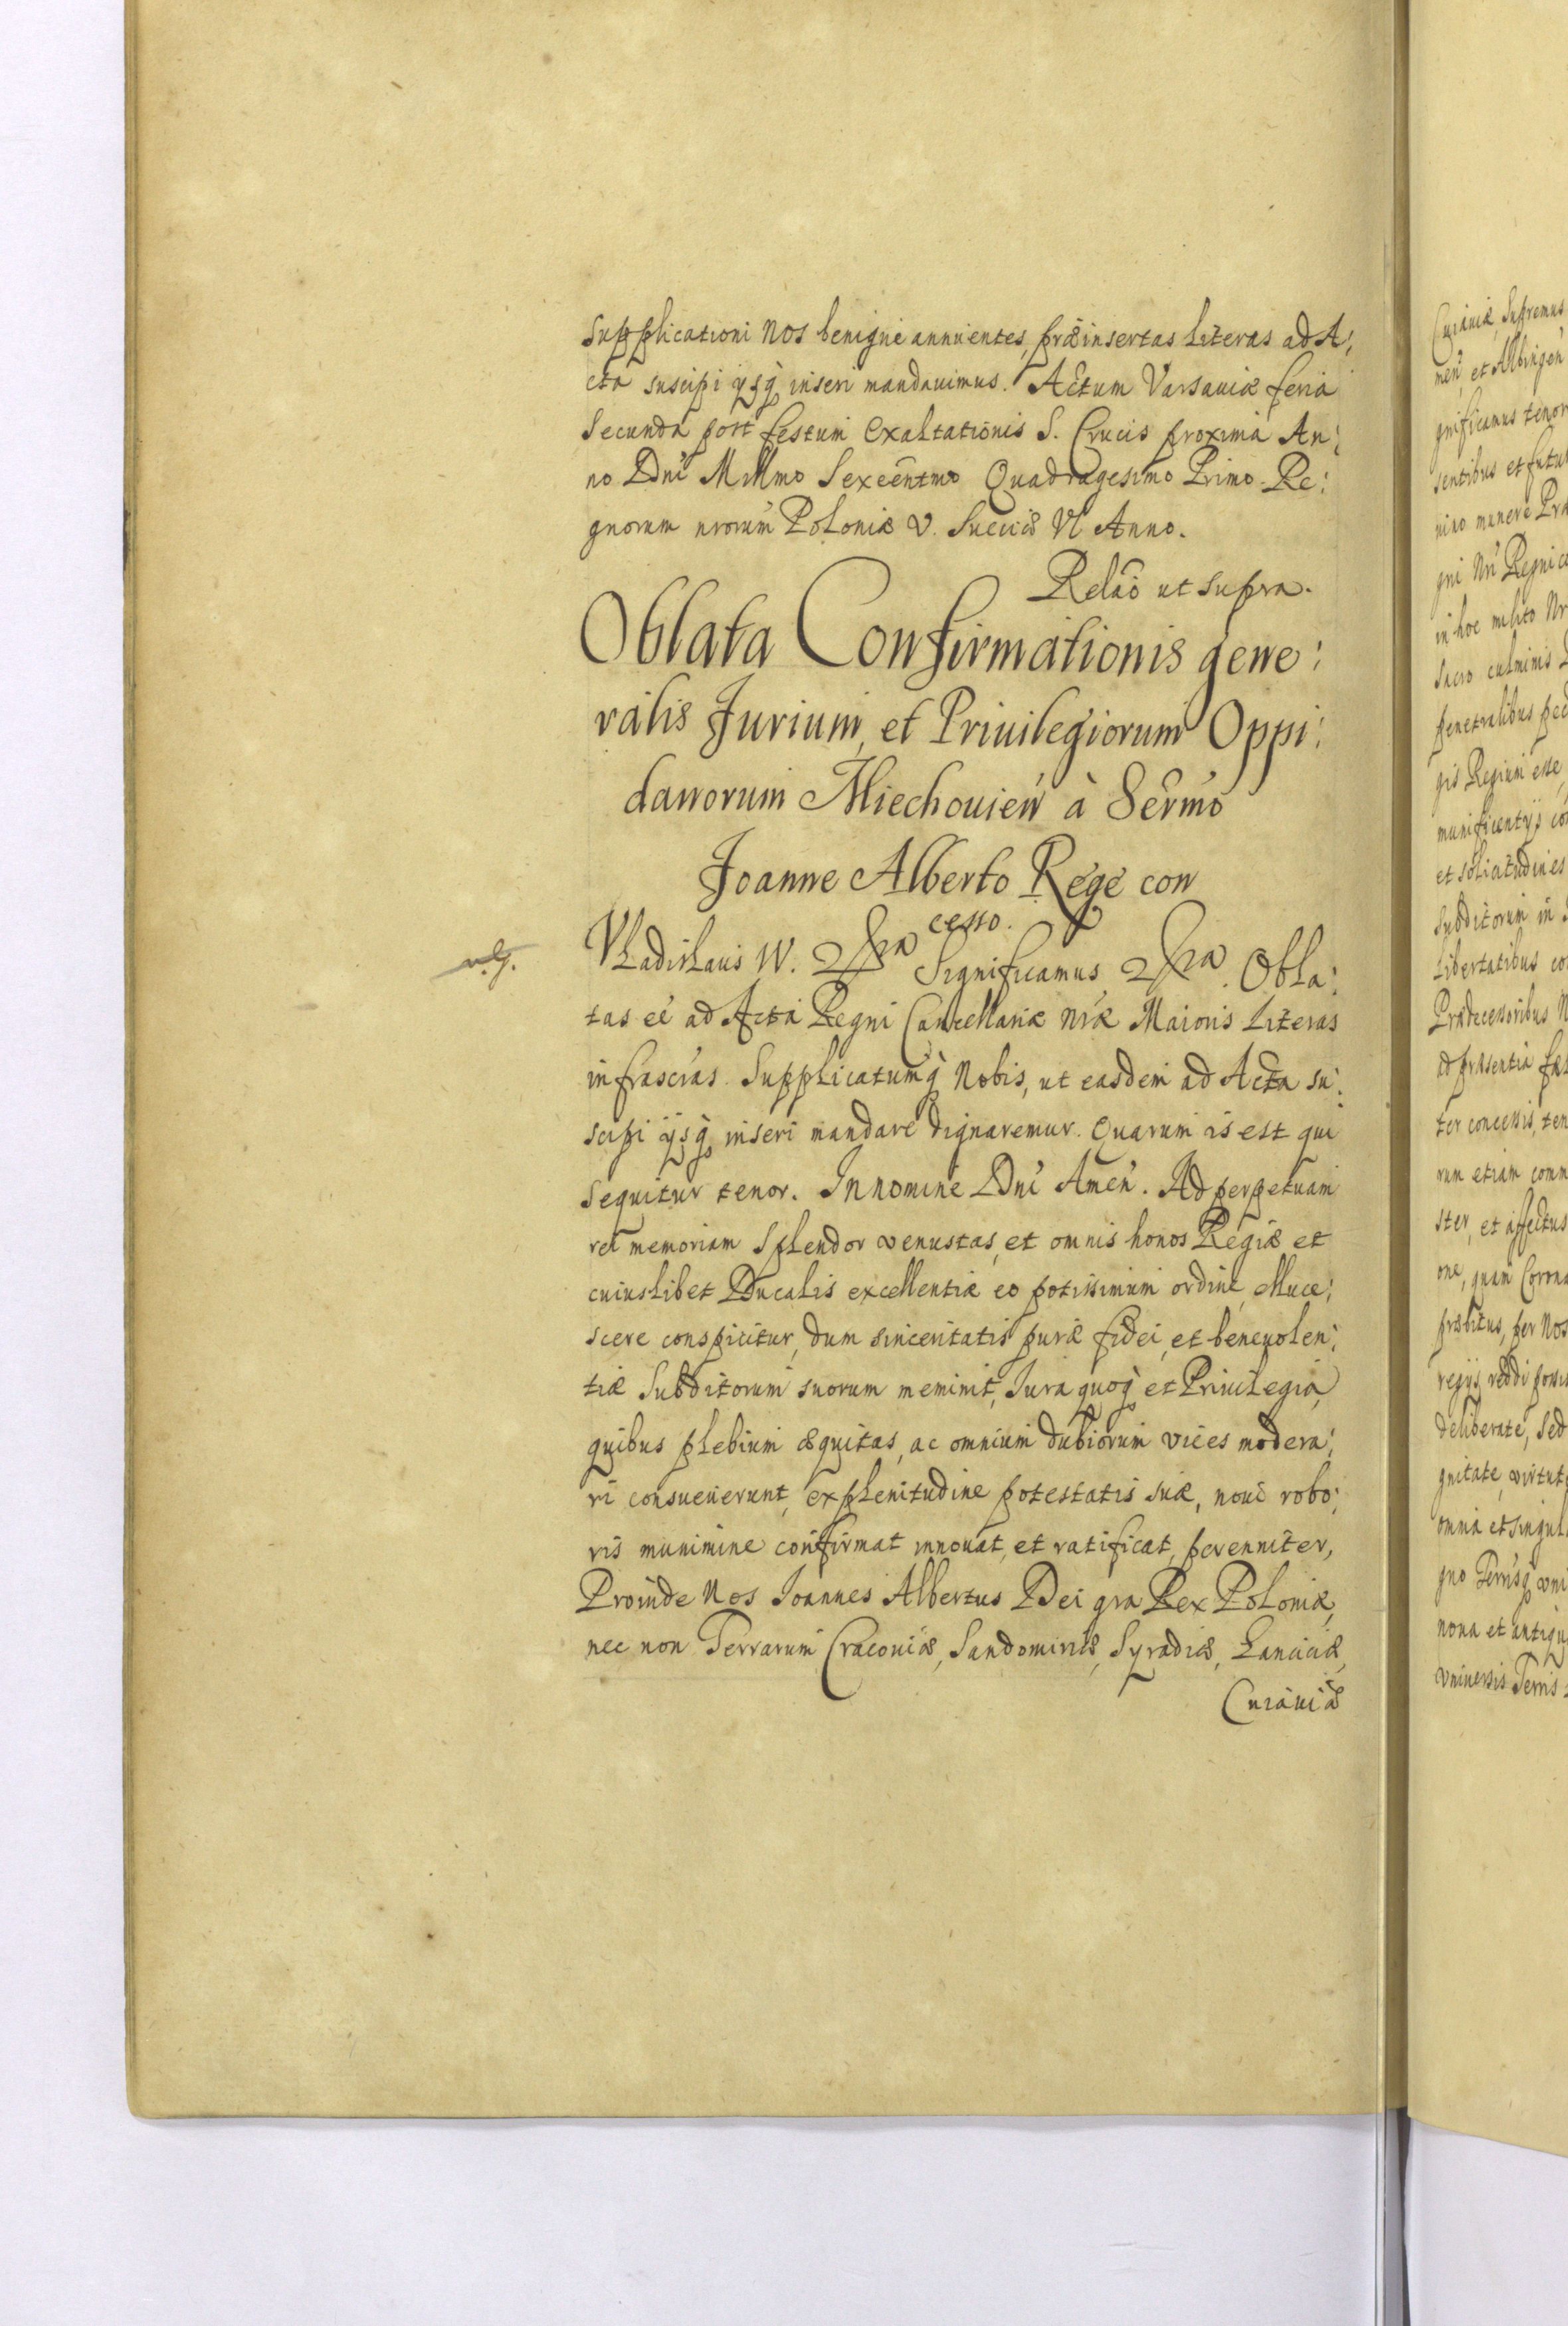 Supplicationi Nos benigne annuentes, præinsertas Literas ad A:
cta suscipi ijsq₃ inseri mandauimus. Actum Varsauiæ feria
Secunda post festum Exaltationis S. Crucis proxima An:
no Dni Millmo Sexcentmo Quadragesimo Primo. Re:
gnorum nrorum Poloniæ V. Sueciæ VI Anno.
Relao ut supra.
Oblata Confirmationis gene:
ralis Jurium, et Priuilegiorum Oppi:
danorum Miechouien à Sermo
Joanne Alberto Rege con
cesso.
Vladislaus IV. Significamus Obla:
tas eē ad Acta Regni Cancellariæ nræ Maioris Literas
infrascras. Supplicatumq₃ Nobis, ut easdem ad Acta su:
scipi ijsq₃ inseri mandare dignaremur. Quarum is est qui
sequitur tenor. In nomine Dni Amen. Ad perpetuam
rei memoriam Splendor venustas, et omnis honos Regiæ et
cuiuslibet Ducalis excellentiæ eo potissimum ordine, elluce:
scere conspicitur, dum sinceritatis puræ fidei, et beneuolen:
tiæ Subditorum suorum meminit, Iura quoq₃ et Priuilegia,
quibus plebium æquitas, ac omnium dubiorum vices modera:
ri consueuerunt, ex plenitudine potestatis suæ, noui robo:
ris munimine confirmat innouat, et ratificat, perenniter,
Proinde Nos Ioannes Albertus Dei gra Rex Poloniæ,
nec non Terrarum Cracouiæ, Sandomiriæ, Syradiæ, Lanciciæ,
Cuiauiæ
Cuiauiæ, Supremus
men, et Elbingen
gnificamus tenor
sentibus et futu
nino munere Pra
gni Nri Regni
in hoc
Sacro culminis
penetralibus
gis Regium esse,
munificentijs co
et solicitudines
Subditorum in
Libertatibus co
Prædecessoribus N
ad præsentia
ter concessis, ten
rum etiam comm
ster, et affectus
one, quam Corona
præbitus, per Nos
regijs reddi
deliberate, sed
gnitate, virtut
omnia et singul
gno Terrisq₃ vni
noua et antiqu
vniuersis Terris